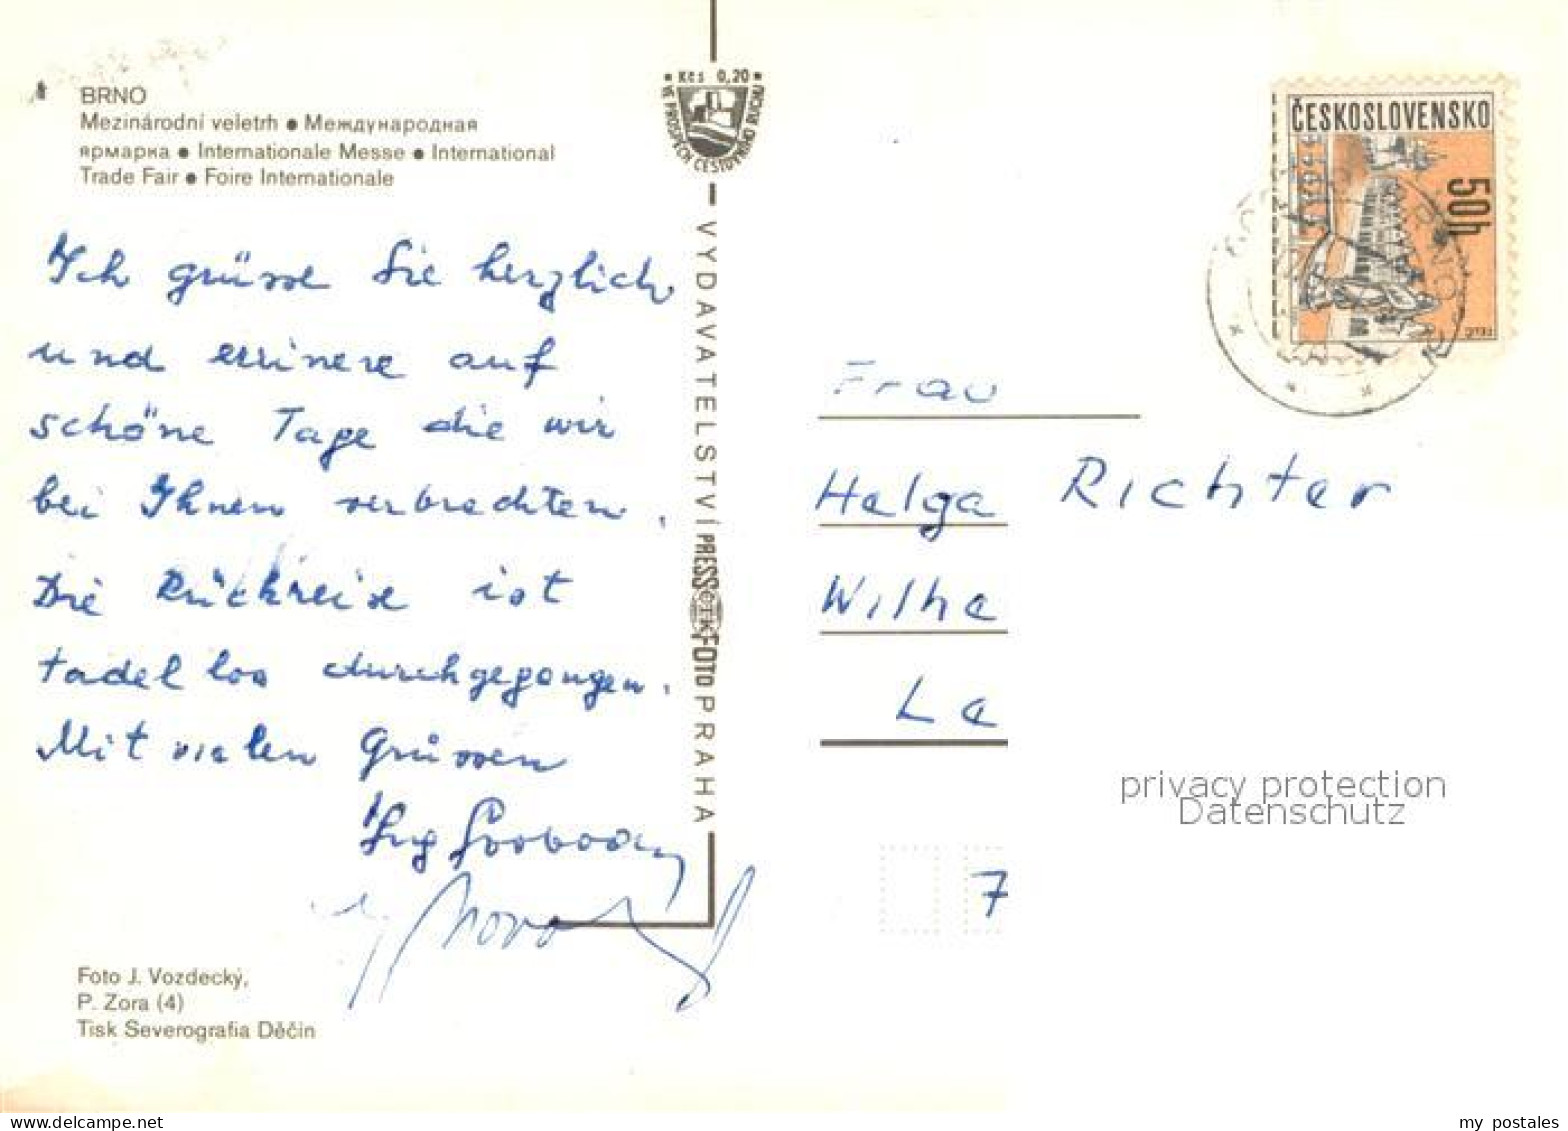 BRNO
Mezinárodní veletrh ● Международная
ярмарка ● Internationale Messe ● International
Trade Fair ● Foire Internationale
Ich grüsse Sie herzlich
und errinere auf
schöne Tage die wir
bei Ihnen verbrachten.
Die Rückreise ist
tadellos durchgegangen.
Mit vielen Grüssen
Ing Svoboda
Foto J. Vozdecký,
P. Zora (4)
Tisk Severografia Děčín
• Kčs 0,20 •
VE PROSPĚCH CESTOVNÍHO RUCHU
VYDAVATELSTVÍ PRESSFOTO PRAHA
ČTK
ČESKOSLOVENSKO
50h
Frau
Helga Richter
Wilhe
Le
7
privacy protection
Datenschutz
my postales